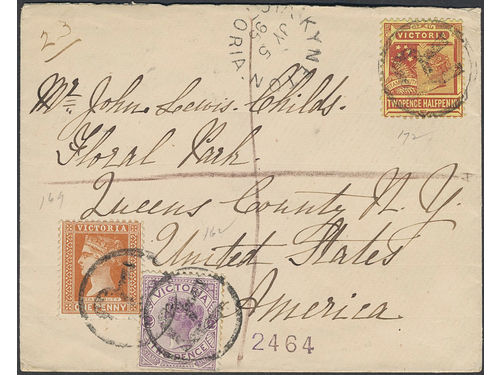 23
KYNE
JY 5
95
ORA
VICTORIA
TWOPENCE HALFPENNY
172
Mr. John Lewis Childs.
Floral Park.
Queens County N.Y.
United States
America.
164
162
VICTORIA
ONE PENNY
VICTORIA
TWO PENCE
2464